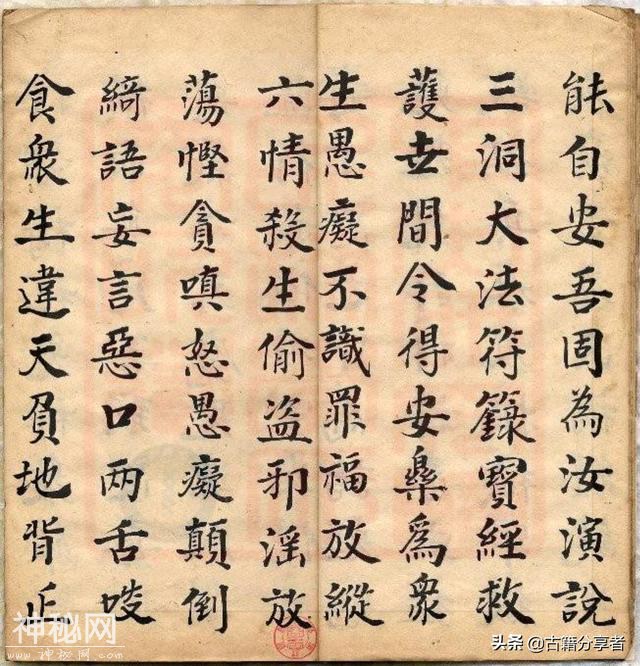 能自安吾固為汝演說
三洞大法符籙寶經救
護世間令得安樂爲衆
生愚癡不識罪福放縱
六情殺生偷盗邪淫放
蕩慳貪嗔怒愚癡顛倒
綺語妄言惡口两舌唼
食衆生違天負地背
神秘网
www.神秘网.com
头条 @古籍分享者